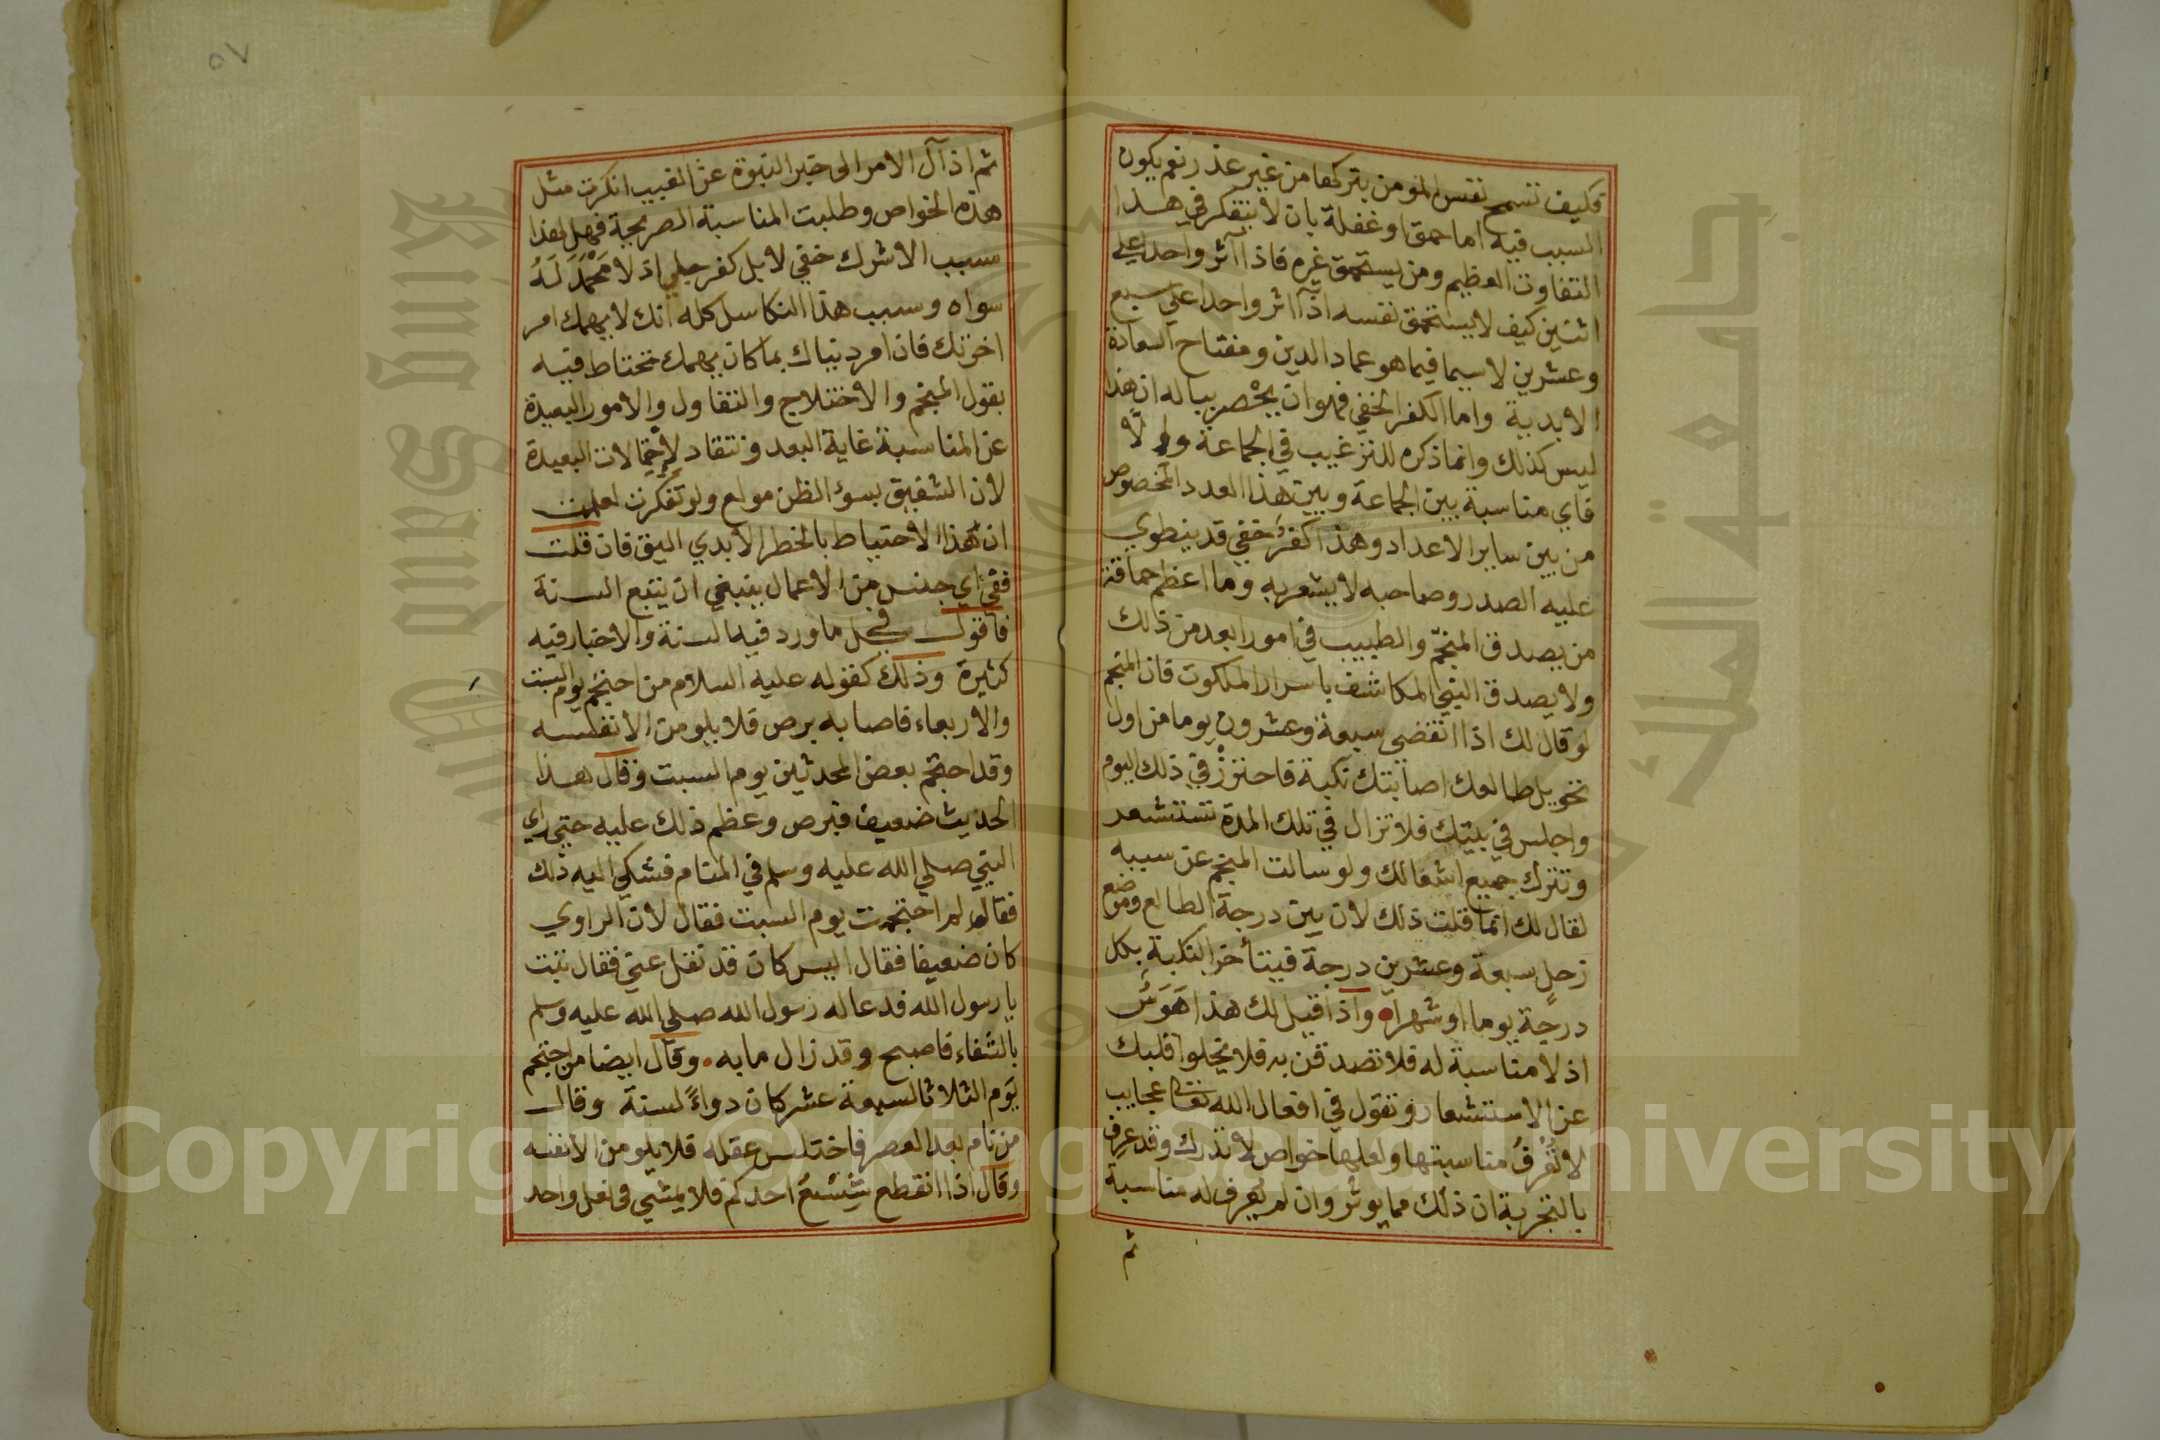 فكيف تسمح نفس المومن بتركها من غير عذر نعم يكون
السبب فيه اما حمق او غفلة بان لا يتفكر في هذا
التفاوت العظيم ومن يستحمق غيره فاذا آثر واحدا علي
اثنين كيف لا يستحمق نفسه اذا آثر واحدا علي سبع
وعشرين لا سيما فيما هو عماد الدين ومفتاح السعادة
الابدية واما الكفر الخفي فهو ان يخصر بباله ان هذا
ليس كذلك وانما ذكره للترغيب في الجماعة والا
فاي مناسبة بين الجماعة وبين هذا العدد المخصوص
من بين ساير الاعداد وهذا كفر خفي قد ينطوي
عليه الصدر وصاحبه لا يشعر به وما اعظم حماقة
من يصدق المنجم والطبيب في امور ابعد من ذلك
ولا يصدق النبي المكاشف باسرار الملكوت فان المنجم
لو قال لك اذا انقضي سبعة وعشرون يوما من اول
تحويل طالعك اصابتك نكبة فاحترز في ذلك اليوم
واجلس في بيتك فلا تزال في تلك المدة تستشعر
وتترك جميع اشغالك ولو سالت المنجم عن سببه
لقال لك انما قلت ذلك لان بين درجة الطالع وموضع
زحل سبعة وعشرين درجة فيتأخر النكبة بكل
درجة يوما او شهرا واذا قيل لك هذا هوس
اذ لا مناسبة له فلا تصدقن به فلا يخلوا قلبك
عن الاستشعار وتقول في افعال الله تعالي عجايب
لا تعرف مناسبتها ولعلها خواص لا تدرك وقد عرف
بالتجربة ان ذلك مما يوثر وان لم يعرف له مناسبة
ثم
٥٧
ثم اذ آل الامر الى خبر النبوة عن الغيب انكرت مثل
هذه الخواص وطلبت المناسبة الصريحة فهل لهذا
سبب الا شرك خفي لا بل كفر جلي اذ لا محمد له
سواه وسبب هذا التكاسل كله انك لا يهمك امر
اخرتك فان امر دنياك بما كان يهمك تحتاط فيه
بقول المنجم والاختلاج والتفاول والامور البعيدة
عن المناسبة غاية البعد وتنقاد لاحتمالات البعيدة
لان الشفيق بسوء الظن مولع ولو تفكرت لعلمت
ان هذا الاحتياط بالخطر الابدي اليق فان قلت
ففي اي جنس من الاعمال ينبغي ان يتبع السنة
فاقول في كل ما ورد فيه السنة والاخبار فيه
كثيرة وذلك كقوله عليه السلام من احتجم يوم السبت
والاربعاء فاصابه برص فلا يلومن الا نفسه
وقد احتجم بعض المحدثين يوم السبت وقال هذا
الحديث ضعيف فبرص وعظم ذلك عليه حتي راي
النبي صلي الله عليه وسلم في المنام فشكي اليه ذلك
فقال له لم احتجمت يوم السبت فقال لان الراوي
كان ضعيفا فقال اليس كان قد نقل عني فقال تبت
يا رسول الله فدعا له رسول الله صلي الله عليه وسلم
بالشفاء فاصبح وقد زال ما به وقال ايضا من احتجم
يوم الثلاثا لسبعة عشر كان دواءً لسنة وقال
من نام بعد العصر فاختلس عقله فلا يلومن الا نفسه
وقال اذا انقطع شسع احدكم فلا يمشي في نعل واحد
Copyright © King Saud University
King Saud University
جامعة الملك سعود